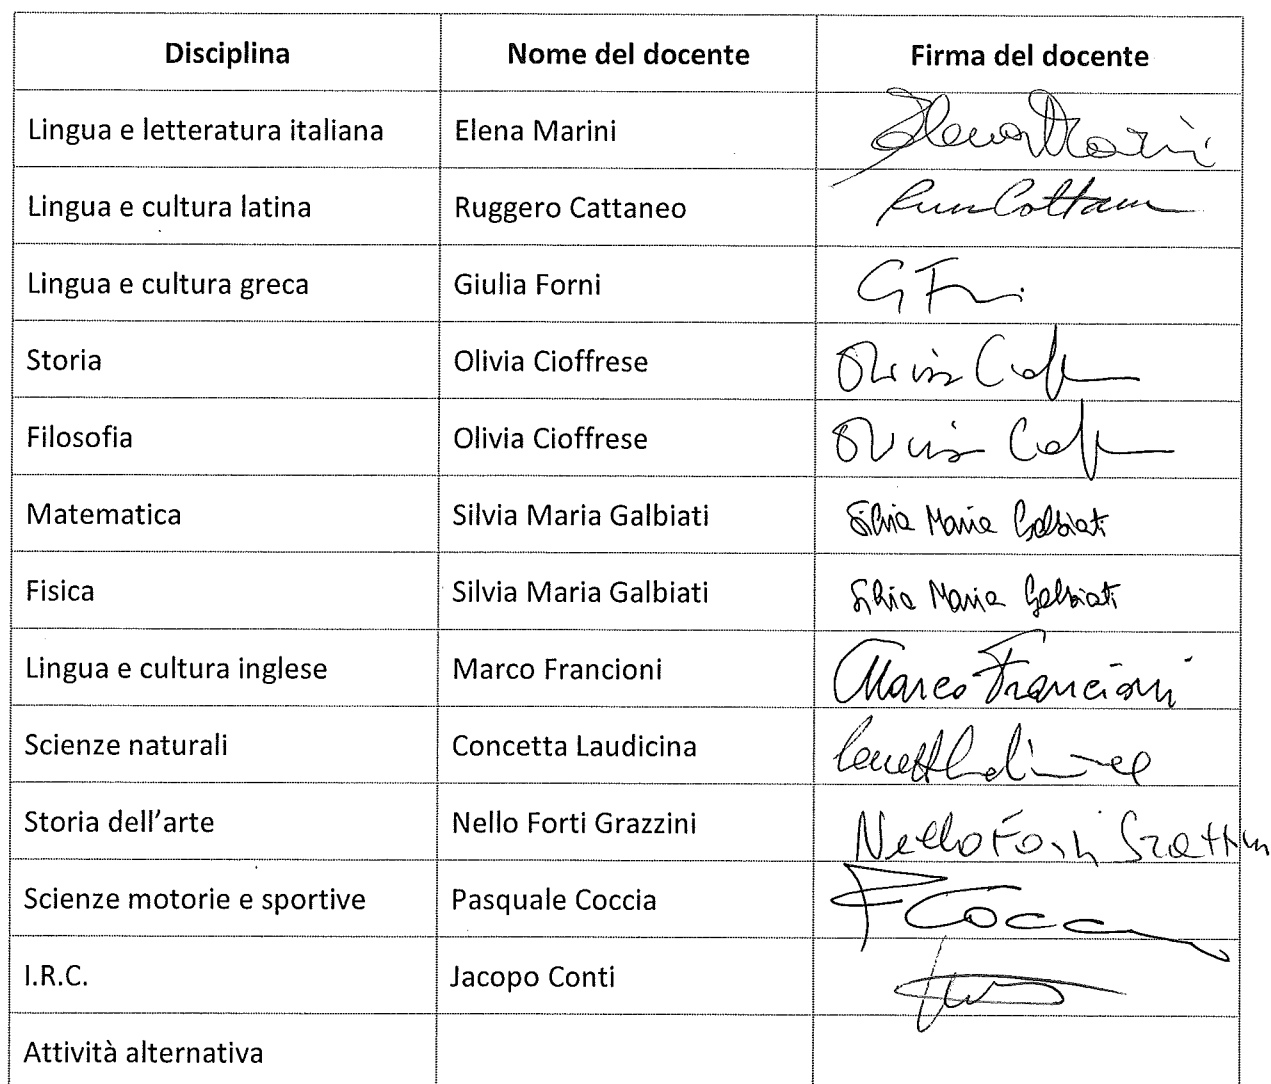 Disciplina Nome del docente Firma del docente
Lingua e letteratura italiana Elena Marini Elena Marini
Lingua e cultura latina Ruggero Cattaneo
Lingua e cultura greca Giulia Forni
Storia Olivia Cioffrese Olivia
Filosofia Olivia Cioffrese Olivia
Matematica Silvia Maria Galbiati Silvia Maria Galbiati
Fisica Silvia Maria Galbiati Silvia Maria Galbiati
Lingua e cultura inglese Marco Francioni Marco Francioni
Scienze naturali Concetta Laudicina
Storia dell’arte Nello Forti Grazzini Nello Forti Grazzini
Scienze motorie e sportive Pasquale Coccia P Coccia
I.R.C. Jacopo Conti
Attività alternativa